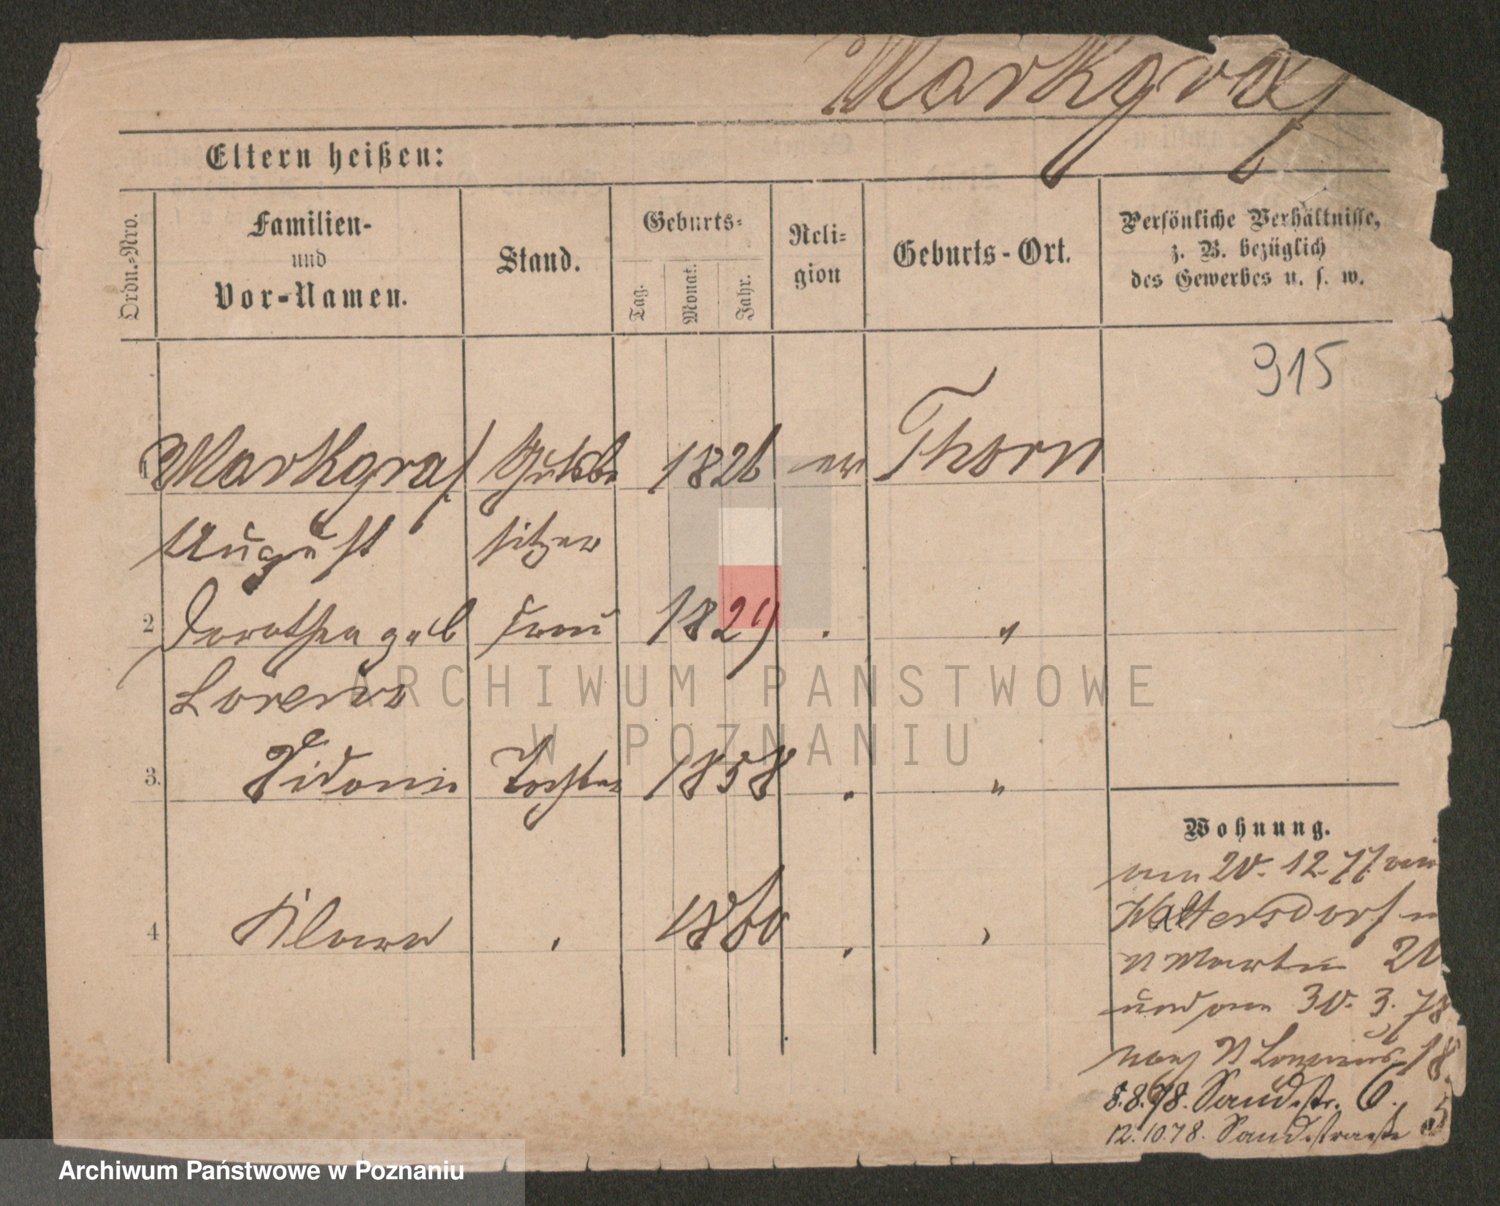 Markgraf
Eltern heißen:
Ordn.-Nro.
Familien-
und
Vor-Namen.
Stand.
Geburts-
Tag.
Monat.
Jahr.
Reli-
gion
Geburts-Ort.
Persönliche Verhältnisse,
z. B. bezüglich
des Gewerbes u. s. w.
915
1 Markgraf Gutsbe 1826 ev Thorn
August sitzer
2 Dorothea geb Frau 1829 . "
Lorenz
3. Sidonie Tochter 1858 " "
4 Klara " 1860 " "
Wohnung.
am 20. 12. 77. von
Woltersdorf n
N Martin 20
und am 30. 3. 78
nach 18
8.8.78. Sandstr. 6.
12.10.78. Sandstrasse
ARCHIWUM PAŃSTWOWE
W POZNANIU
Archiwum Państwowe w Poznaniu